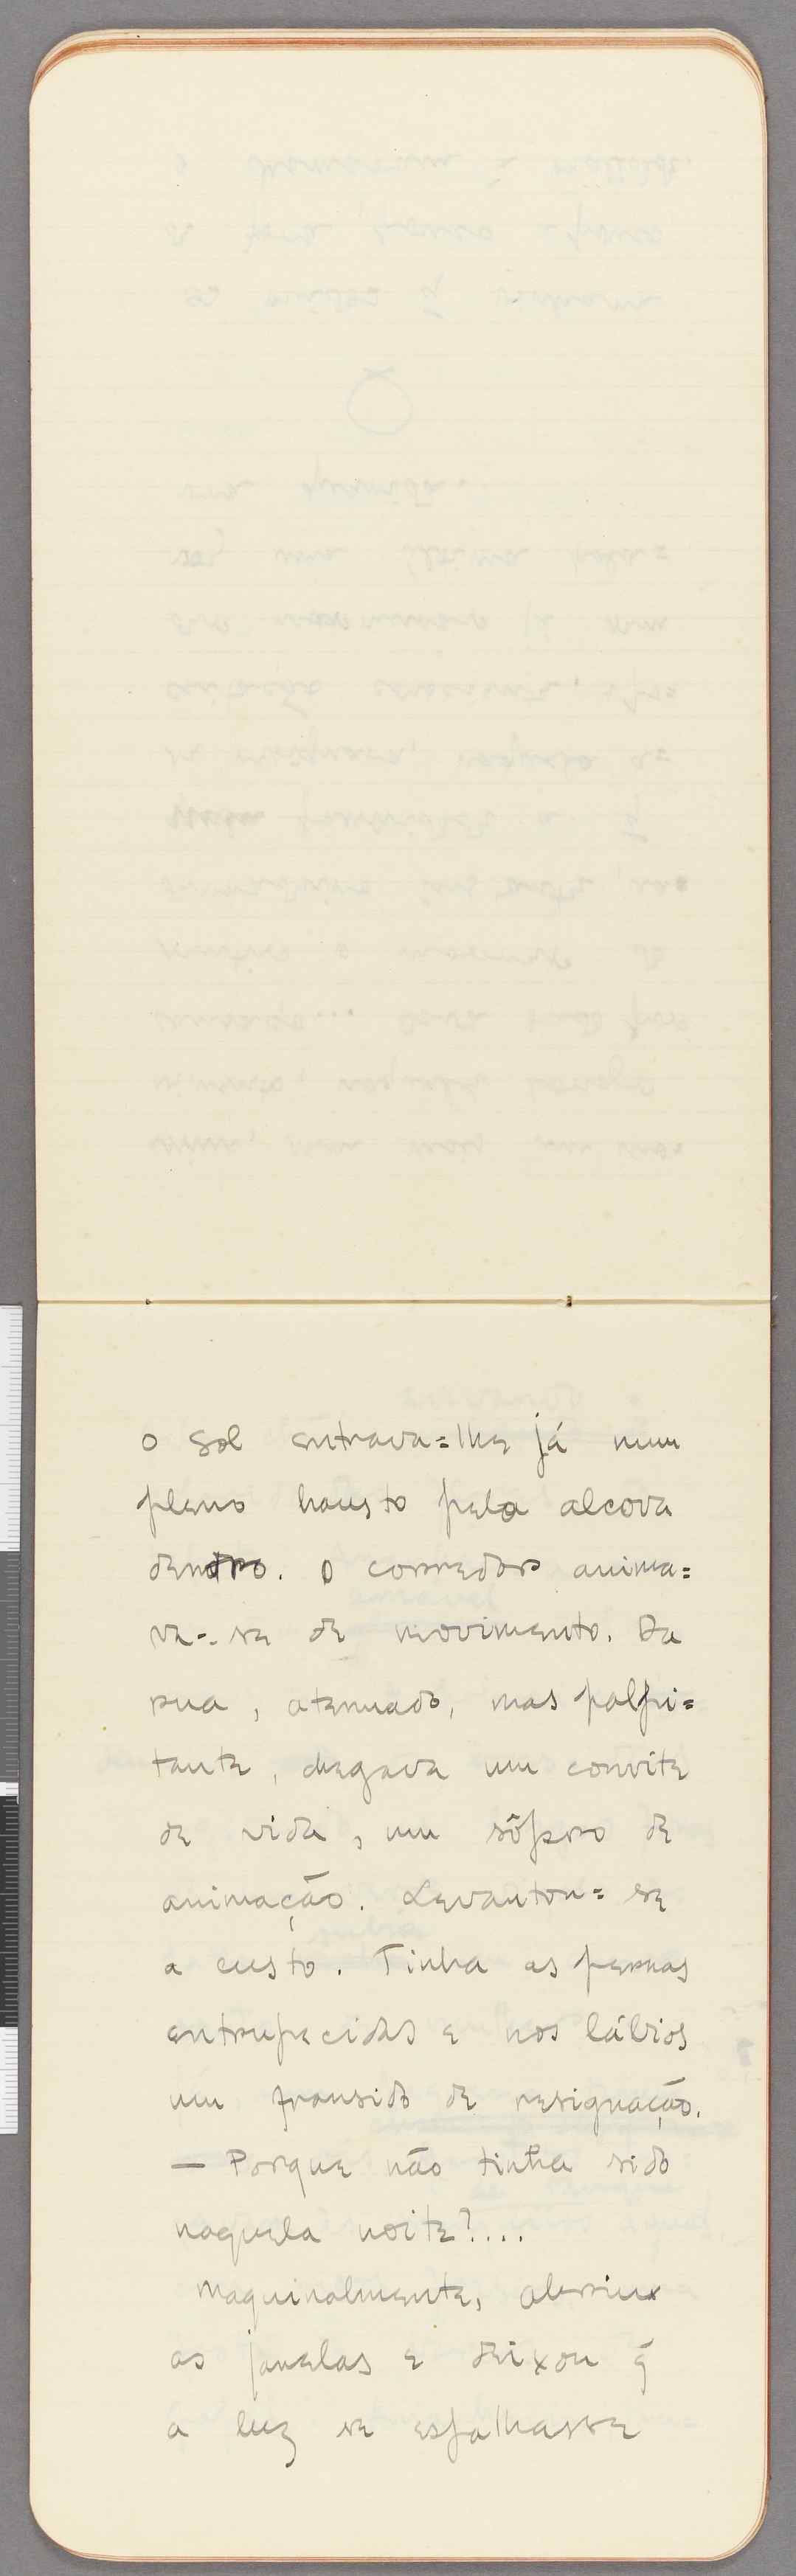 O sol entrava=lhe já num
pleno hausto pela alcova
dentro. O corredor anima=
va-se de movimento. Da
rua, atenuado, mas palpi=
tante, chegava um convite
de vida, um sôpro de
animação. Levantou=se
a custo. Tinha as pernas
entrupecidas e nos lábios
um fransido de resignação.
— Porque não tinha sido
naquela noite?....
Maquinalmente, abriu
as janelas e deixou q̃
a luz se espalhasse